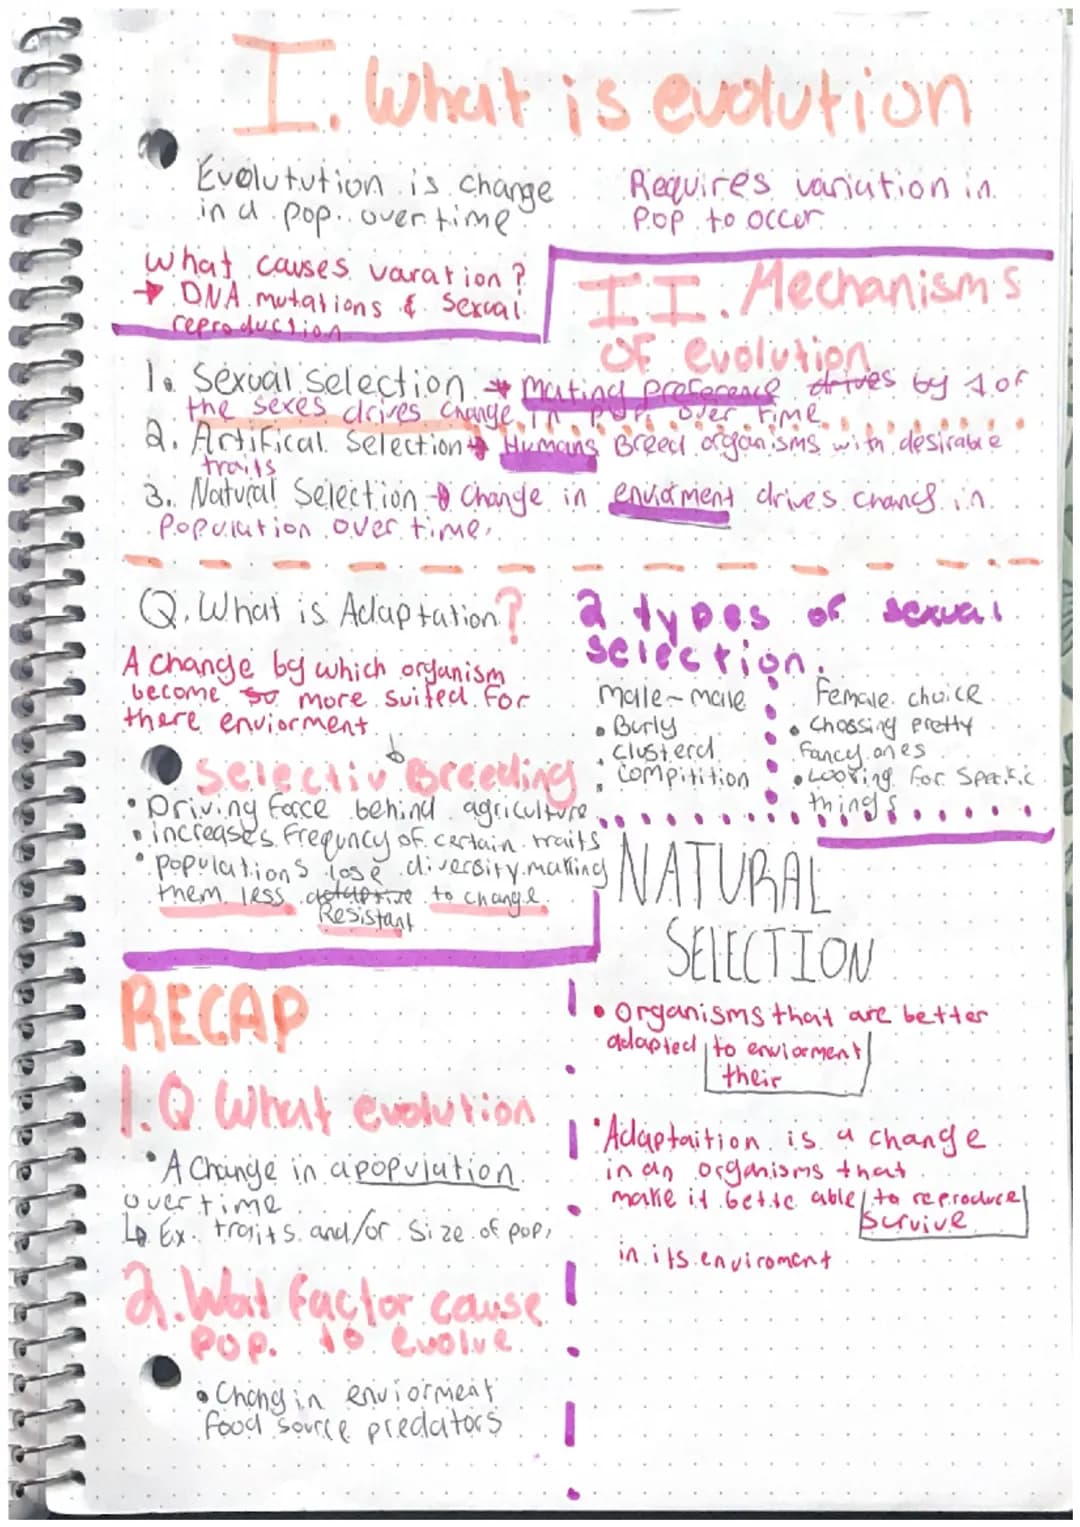 I. What is evolution
Evolutution is change
in a pop. over time
Requires variation in
pop to occer
What causes varation?
→ DNA mutations & Sexual
reproduction
II. Mechanisms
OF evolution
1. Sexual selection → Mating preference drives by 1 of
the sexes drives change in pop. over time
2. Artifical Selection → Humans Breed organisms with desirable
traits
3. Natural Selection → Change in enviorment drives change in
Population over time.
Q. What is Adaptation?
A change by which organism
become so more suited for
there enviorment
2 types of sexual
selection.
male-male
• Burly
• clusterd
• Compitition
Female choice
• Chossing pretty
fancy ones
• Looking for Speific
things
Selectiv Breeding
• Driving force behind agriculture
• increases frequncy of certain traits
• populations lose diversity making
them less adaptive to change
Resistant
NATURAL
SELECTION
• Organisms that are better
adapted to enviorment
their
• Adaptaition is a change
in an organisms that
make it bette able to reproduce
Survive
in its enviroment
RECAP
1.Q What evolution
• A Change in a population
over time
↳ Ex. traits and/or Size of pop.
2. Wat factor cause
pop. to evolve
• Chang in enviorment
food source predators